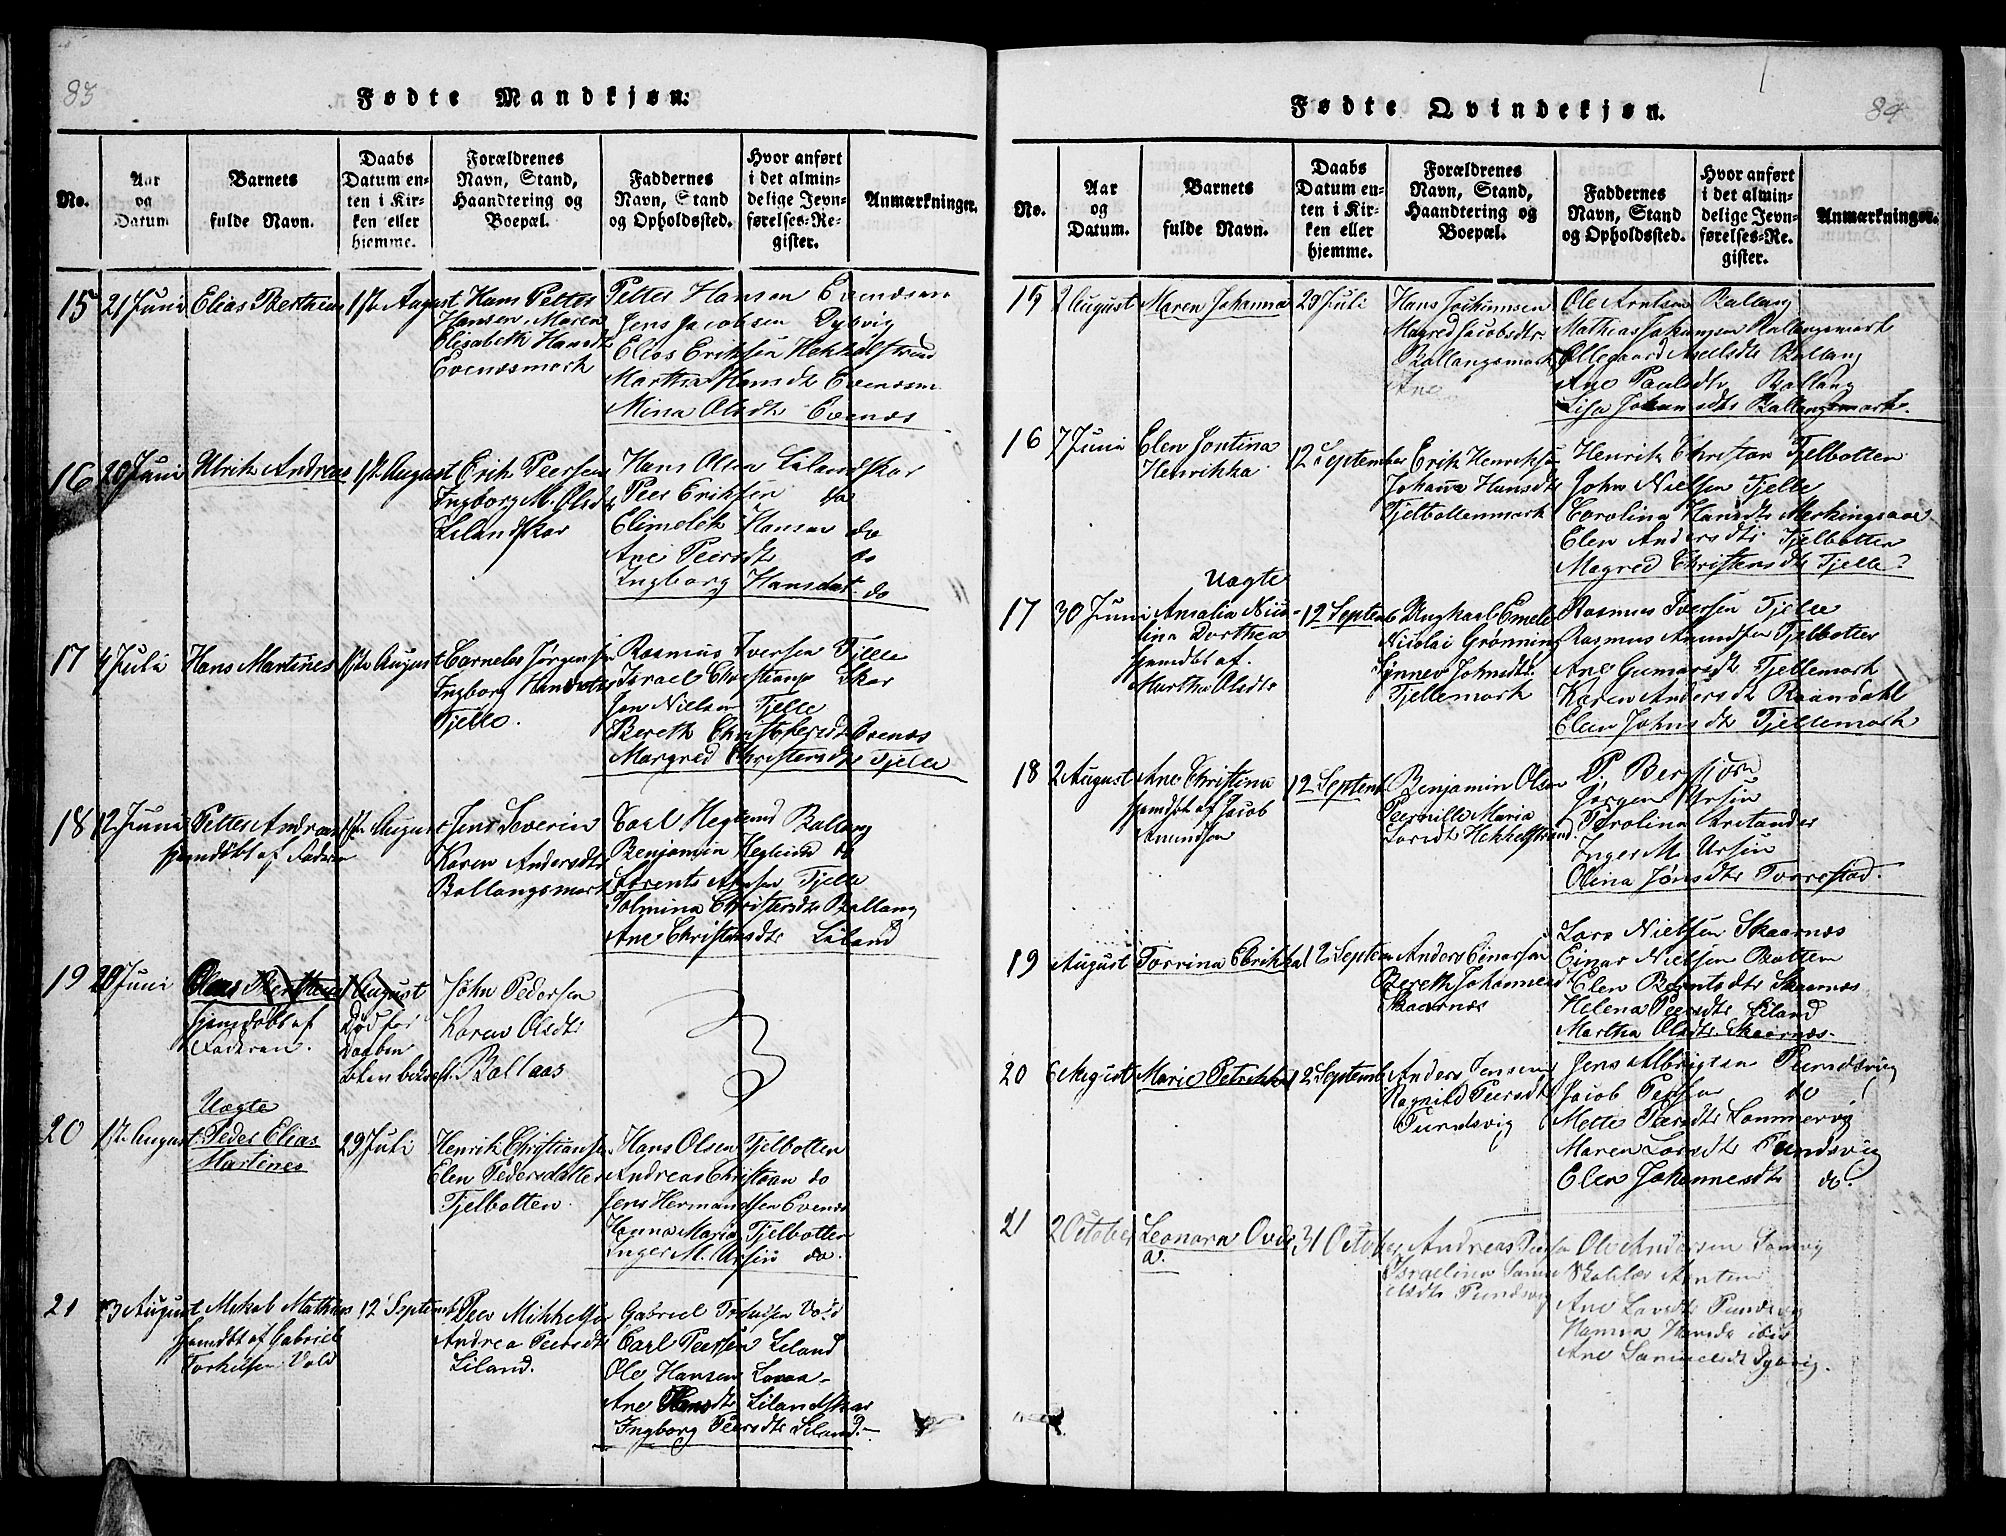 83
Fødte Mandkjøn.
No.
Aar
og
Datum
Barnets
fulde Navn.
Daabs
Datum en-
ten i Kir-
ken eller
hjemme.
Forældrenes
Navn, Stand,
Haandtering og
Boepæl.
Faddernes
Navn, Stand
og Opholdssted.
Hvor anført
i det almin-
delige Jevn-
førelses-Re-
gister.
Anmærkninger.
15
21 Juni
Elias Bertheus
1st. August
Hans Petter
Hansen Maren
Elisabeth Hansdtr
Evenæsmark
Petter Hansen Evenæsm
Jens Jacobsen Dybvig
Elias Eriksen Hekkelstrand
Martha Hansdtr Evenæsm
Mina Olsdtr Evenæs
16
20 Juni
Ulrik Andreas
1st. August
Erik Peersen
Ingborg M. Olsdtr
Lilandskar
Hans Olsen Lilandskar
Peer Eriksen do
Elimelek Hansen do
Ane Peersdtr do
Ingborg Hansdat. do
17
4 Juli
Hans Martines
1ste August
Corneles Jørgensen
Ingborg Hansdtr
Tjelle.
Rasmus Iversen Tjelle
Israel Christians Skar
Jon Nielsen Tjelle
Bereth Christofersdtr Evenæs
Margred Christensdtr Tjelle
18
12 Juni
Petter Andreas
hjemdøbt af Faderen
1ste August
Jens Severin
Karen Andersdtr
Ballangsmark
Carl Heglund Ballang
Benjamin Heglund do
Lorents Tjelle
Tolmina Christensdtr Ballang
Ane Christensdtr Liland
19
20 Juni
Elias Bertheus
hjemdøbt af
Faderen.
1 August
Død før
Daaben
blev bekræft.
John Pedersen
Karen Olsdtr
Ballaas
20
1st. August
Uægte
Peder Elias
Martines
29 Juli
Henrik Christiansen
Elen Pedersdatter
Tjelbotten
Hans Olsen Tjelbotten
Andreas Christian do
Jens Hermandsen Evenæs
Hanna Maria Tjelbotten
Inger M. Ursin do.
21
3 August
Mekal Mathias
hjemdøbt af Gabriel
Torkelsen Vold
12 Septemb.
Peer Mikkelsen
Andrea Peersdtr
Liland.
Gabriel Torkelsen Vold
Carl Peersen Liland
Ole Hansen Lavaa
Ane Hansdtr Lilandskar
Ingborg Peersdtr Liland.
84
Fødte Qvindekjøn.
No.
Aar
og
Datum.
Barnets
fulde Navn.
Daabs
Datum en-
ten i Kir-
ken eller
hjemme.
Forældrenes
Navn, Stand,
Haandtering og
Boepæl.
Faddernes
Navn, Stand
og Opholdssted.
Hvor anført
i det almin-
delige Jevn-
førelses-Re-
gister.
Anmærkninger.
15
2 August
Maren Johanna
29 Juli
Hans Jochumsen
Magred Jacobsdtr
Ballangsmark
Ane
Ole Arntsen Ballang
Mathias Johansen Ballangsmark
Ollegaard Neelsdtr Ballang
Ane Paulsdtr Ballang
Lisa Johansdtr Ballangsmark.
16
7 Juni
Elen Jontina
Henrikka
12 September
Erik Henriksen
Johanna Hansdtr
Tjelbottenmark
Henrik Christian Tjelbotten
John Nielsen Tjelle
Carolina Hansdtr Merkingsaae
Elen Andersdtr Tjelbotten
Magred Christensdtr Tjelle
17
30 Juni
Uægte
Amalia Nico-
lina Dorthea
hjemdøbt af
Martha Olsdtr
12 Septemb
Ungkarl Emele
Nicolai Grønning
Synnev Johnsdtr.
Tjellemark
Rasmus Iversen Tjelle
Rasmus Amundsen Tjelbotten
Ane Gumarsdtr Tjellemark
Karen Andersdtr Raandahl
Elen Johnsdtr Tjellemark
18
2 August
Ane Christina
hjemdøbt af Jacob
Amundsen
12 Septemb
Benjamin Olsen
Peernille Maria
Larsdtr Hekkelstrand
P. Berstrøm
Jørgen Ursin
Carolina Aretander
Inger M. Ursin
Olina Jønsdtr Torrestad.
19
August
Torrina Erikka
12 Septem
Anders Einarsen
Bereth Johannesdtr
Skaarnæs
Lars Nielsen Skaarnæs
Einar Nielsen Botten
Elen Berntsdtr Skaarnæs
Helena Peersdtr Liland
Martha Olsdtr. Skaarnæs
20
6 August
Marie Petrikka
12 Septemb
Anders Jensen
Ragnild Peersdtr
Pundsvig
Jens Albrigtsen Pundsvig
Jacob Peersen do
Mette Peersdtr Lommervig
Maren Larsdtr Pundsvig
Elen Johannesdtr do.
21
2 October
Leonora Ovidi
a.
31 October
Andreas Peersen
Israelina Samu
elsdtr Pundsvig
Ole Andersen Sandvig
Arntsen
Ane Larsdtr Pundsvig
Hanna Hansdtr ibid
Ane Samuelsdtr Dybvig.